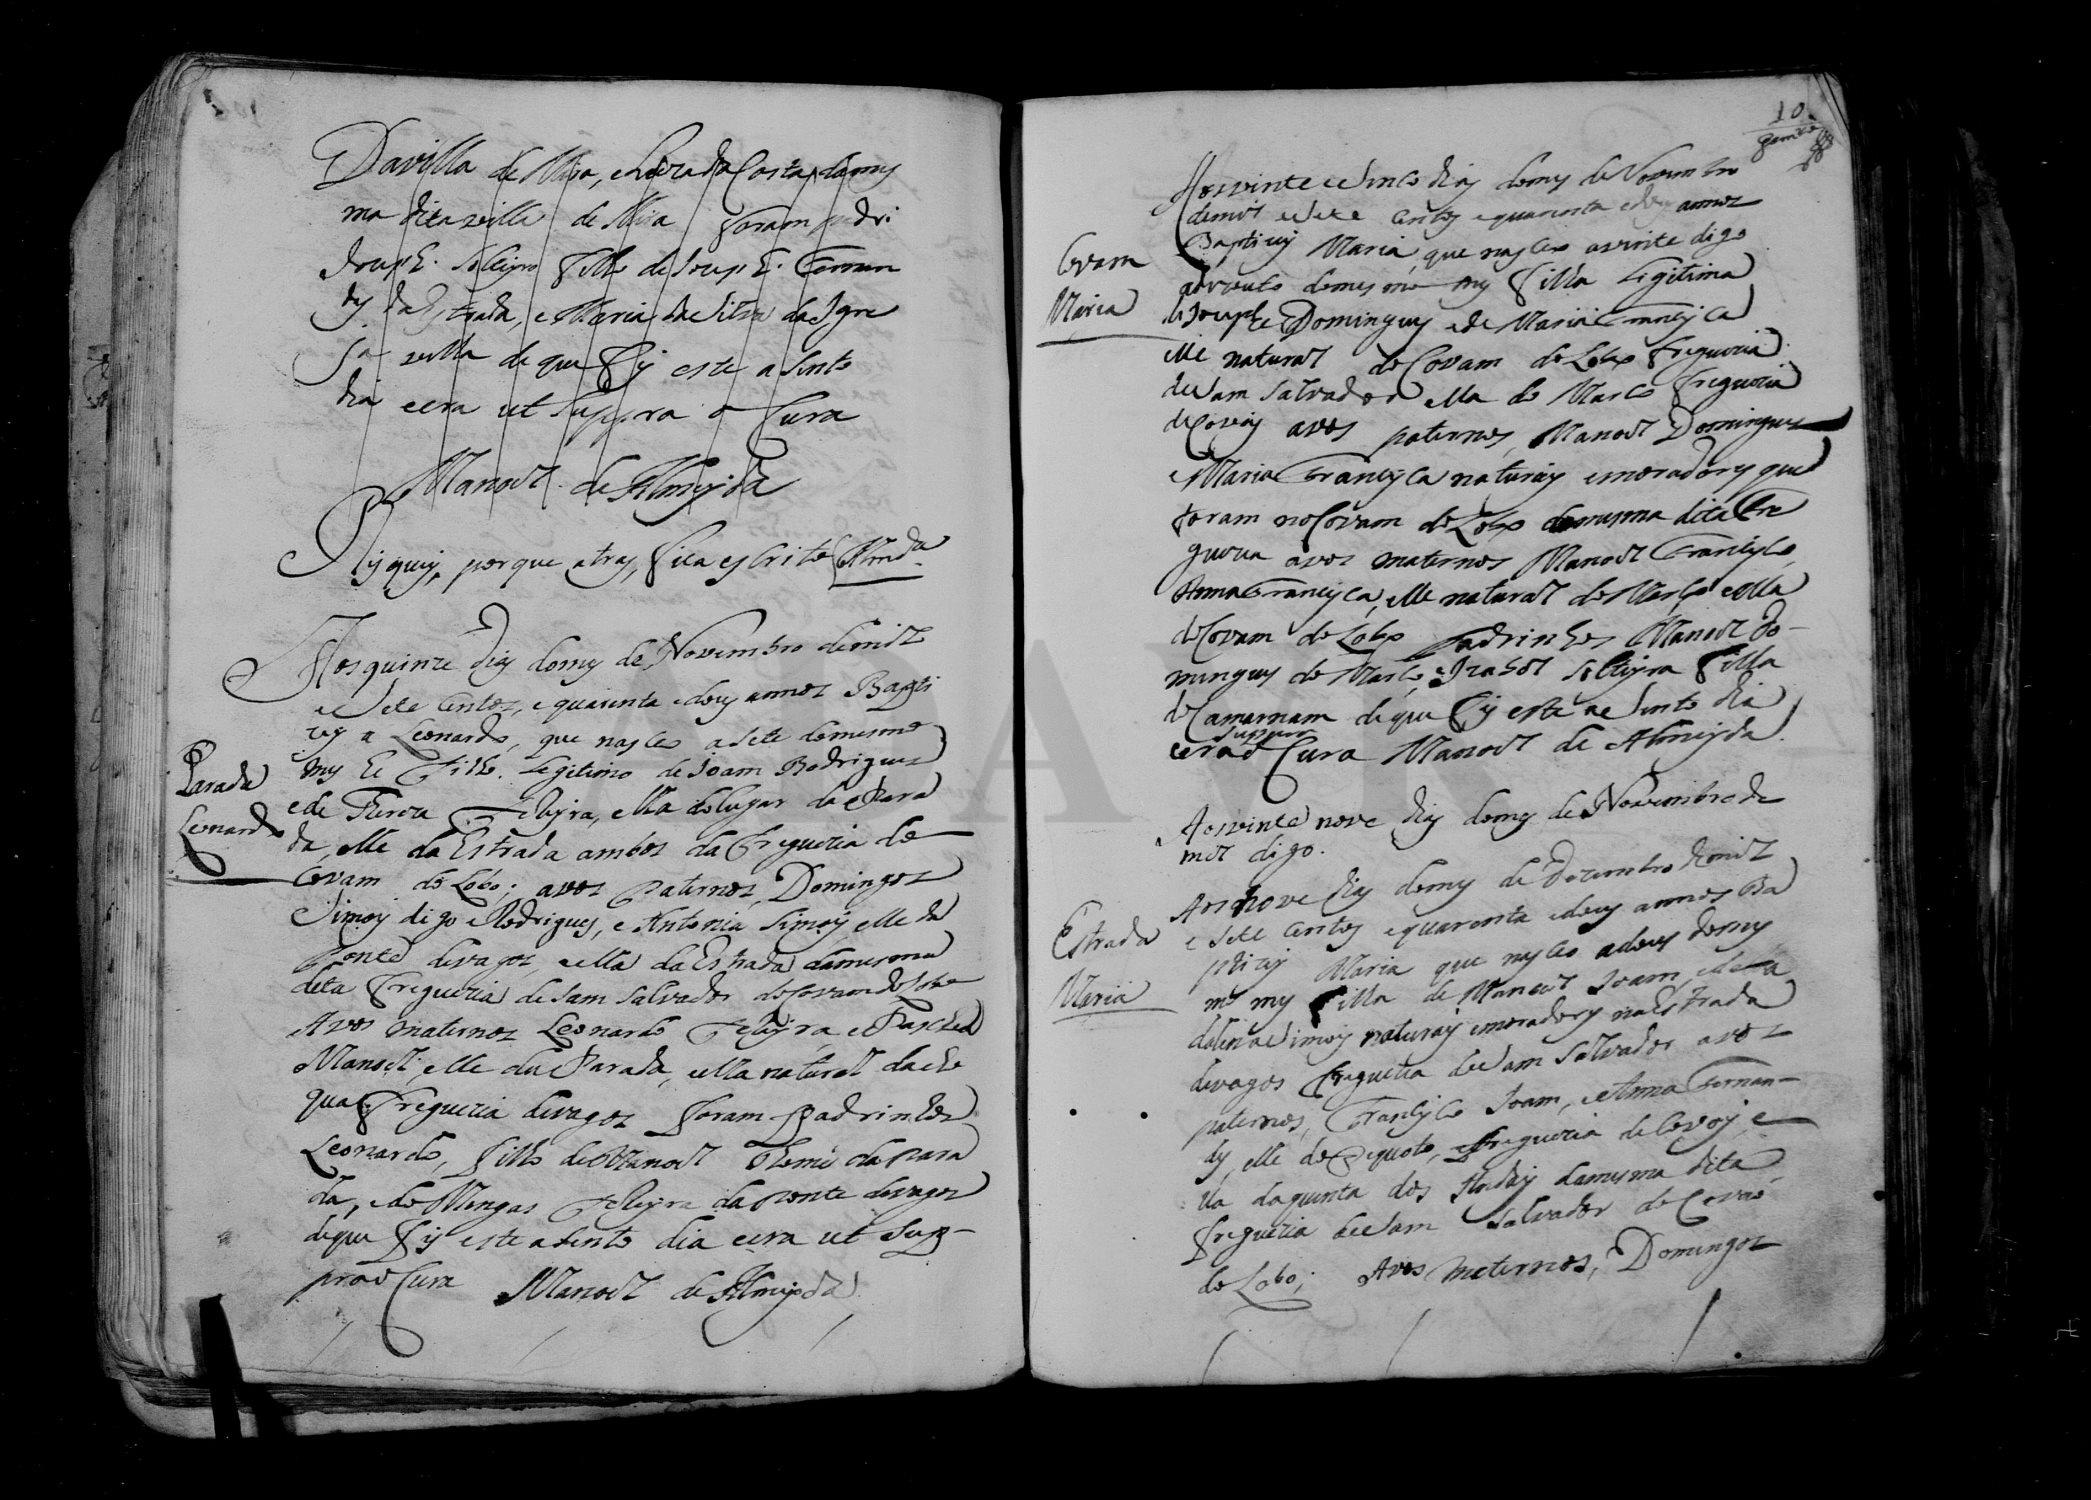 Davilla de Mira, e Luzia da Costa, da mes
ma dita villa de Mira foram padri
Joseph solteyro filho de Joseph Fernan
des da Estrada, e Maria da Silva da Igre
ja velha de que fis este asento
dia e era ut supra o Cura
Manoel de Almeyda
Risquey, porque atras fica escrito Almda
Aos quinze dias do mes de Novembro de mil
e sete centos, e quarenta e dous annos Bapti
zey a Leonardo, que nasceo a sete do mesmo
mes he filho legitimo de Joam Rodrigues
e de Thereza Ferreyra, ella do lugar da Para
da, elle da Estrada ambos da Freguezia de
Covam do Lobo; avos Paternos, Domingos
Simois digo Rodrigues, e Antonia Simois, elle da
Ponte de vagos, e ella da Estrada da mesma
dita Freguezia de Sam Salvador do Covam do Lobo
Avos maternos Leonardo Ferreyra, e Paschoa
Manoel, elle da Parada, ella natural da
qua Freguezia de vagos foram Padrinhos
Leonardo, filho de Manoel Thome da Para
da, e Domingas Ferreyra da Ponte de vagos
de que fis este asento dia e era ut sup-
pra o Cura Manoel de Almeyda
Parada
Leonardo
10
Aos vinte e sinco dias do mes de Novembro
de mil e sete centos e quarenta e dous annos
Baptizey Maria, que nasceo a vinte digo
a dezouto do mesmo mes filha legitima
de Joseph Domingues e de Maria Francisca
elle natural do Covam do Lobo freguezia
de Sam Salvador ella de Marco freguezia
de Covois avos paternos, Manoel Domingues
e Maria Francisca naturais e moradores que
foram no Covam do Lobo da mesma dita Fre
guezia avos maternos Manoel Francisco,
Anna Francisca, elle natural do Marco e ella
do Covam do Lobo Padrinhos Manoel Do-
mingues do Marco, e Izabel solteyra filha
de que fis este asento dia
suppra
e era o Cura Manoel de Almeyda
Covam
Maria
Aos vinte nove dias do mes de Novembro de
mil digo.
Aos nove dias do mes de Dezembro de mil
e sete centos e quarenta e dous annos Ba
ptizey Maria que nasceo a dous do mes
mo mes filha de Manoel Joam, e Ma
dalena Simois naturais e moradores na Estrada
de vagos freguezia de Sam Salvador avos
paternos, Francisco Joam, e Anna Fernan-
des, elle do freguezia de Covois, e
lla da quinta dos Andais da mesma dita
freguezia de Sam Salvador de Covão
do Lobo; Avos maternos, Domingos
Estrada
Maria